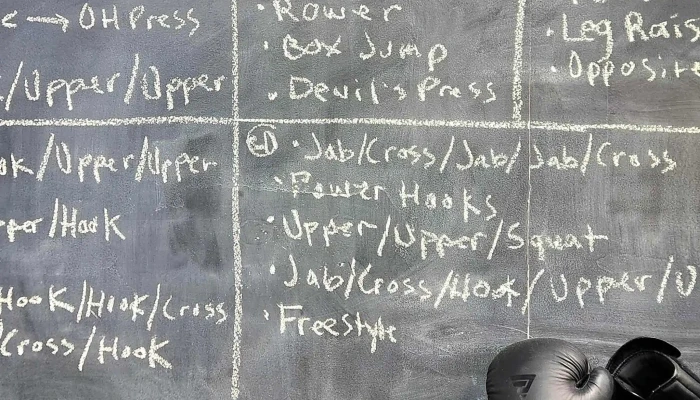 e → OH Press
/Upper/Upper
• Rower
• Box Jump
• Devil's Press
• Leg Rais
• Opposite
ok/Upper/Upper
per/Hook
Hook/Hook/Cross
Cross/Hook
• Jab/Cross/Jab/Jab/Cross
• Power Hooks
• Upper/Upper/Squat
• Jab/Cross/Hook/Upper/U
• Freestyle